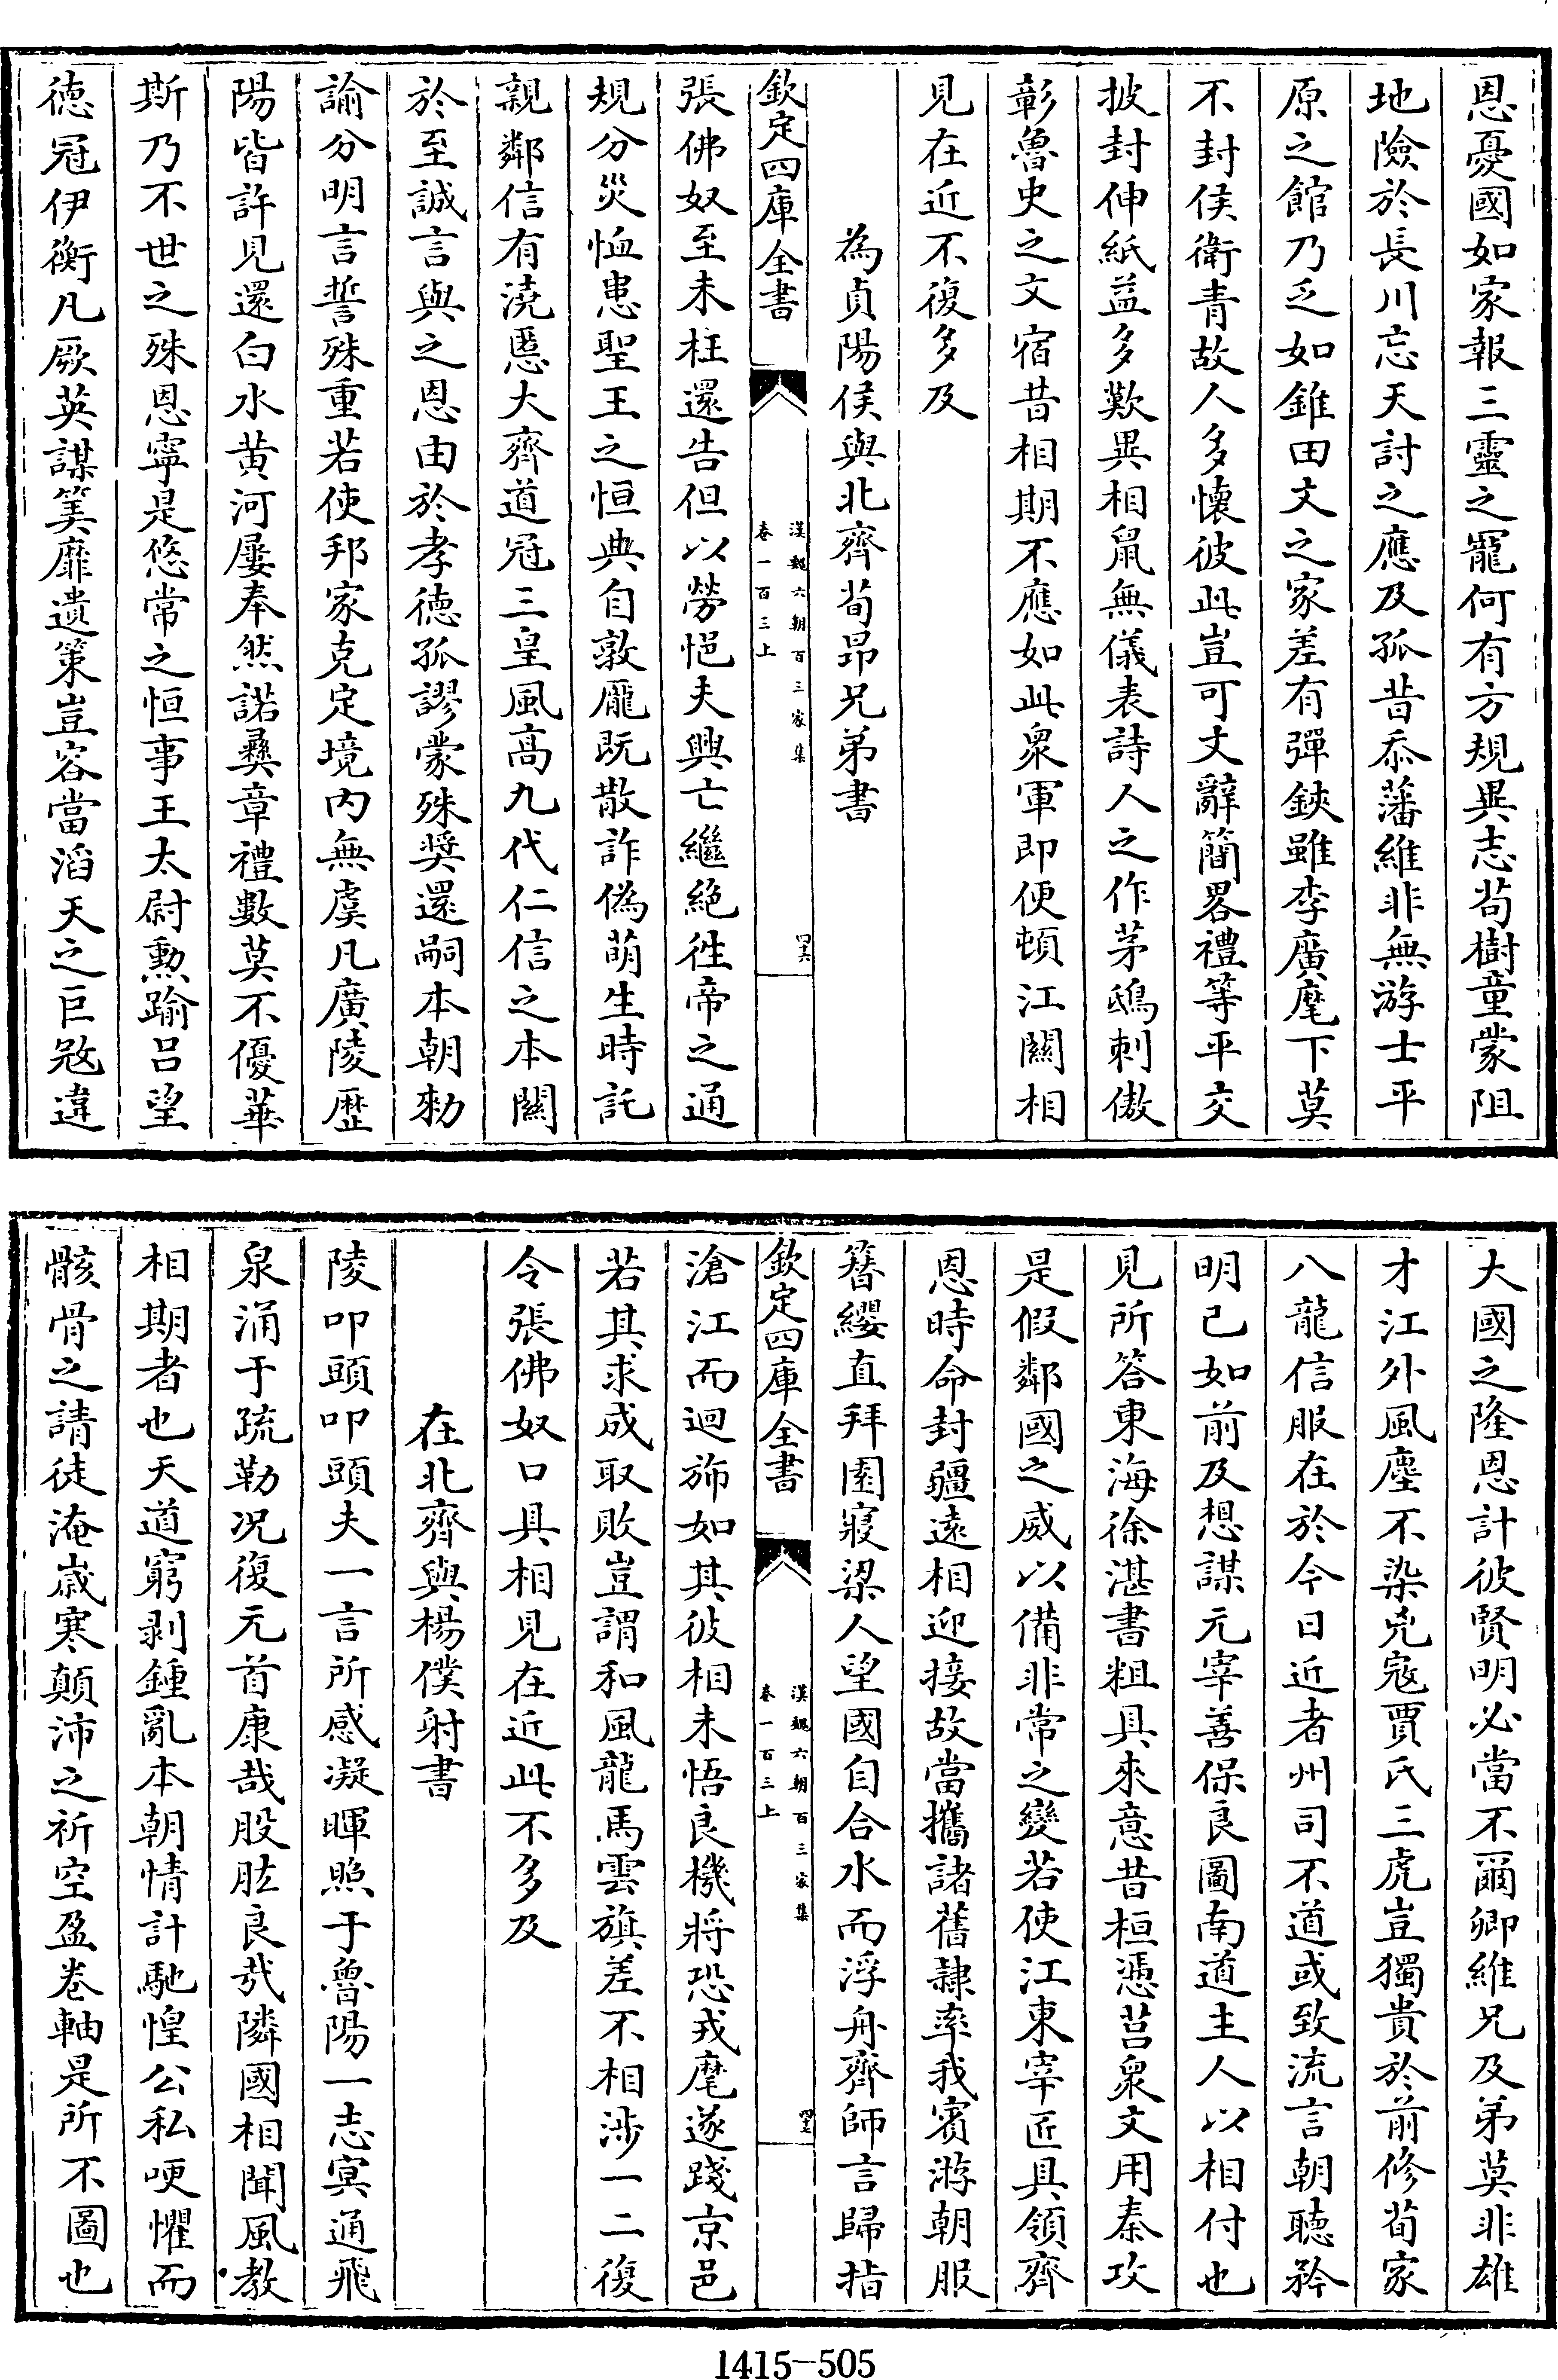 恩憂國如家報三靈之寵何有方規異志茍樹童蒙阻
地險於長川忘天討之應及孤昔忝藩維非無游士平
原之館乃乏如錐田文之家差有彈鋏雖李廣麾下莫
不封侯衛青故人多懷彼此豈可丈辭簡畧禮等平交
披封伸紙益多歎異相鼠無儀表詩人之作茅鴟刺傲
彰魯史之文宿昔相期不應如此衆軍即便頓江闗相
見在近不復多及
為貞陽侯與北齊荀昂兄弟書
欽定四庫全書
漢魏六朝百三家集
卷一百三上
四十六
張佛奴至未枉還告但以勞悒夫興亡繼絶徃帝之通
規分災恤患聖王之恒典自敦厖既散詐偽萌生時託
親鄰信有澆慝大齊道冠三皇風高九代仁信之本闗
於至誠言與之恩由於孝德孤謬蒙殊奬還嗣本朝勑
諭分明言誓殊重若使邦家克定境内無虞凡廣陵歴
陽皆許見還白水黄河屢奉然諾彞章禮數莫不優華
斯乃不世之殊恩寧是悠常之恒事王太尉勲踰吕望
德冠伊衡凡厥英謀筭靡遺策豈容當滔天之巨冦違
大國之隆恩計彼賢明必當不爾卿維兄及弟莫非雄
才江外風塵不染兇寇賈氏三虎豈獨貴於前修荀家
八龍信服在於今日近者州司不道或致流言朝聽矜
明已如前及想謀元宰善保良圖南道主人以相付也
見所答東海徐湛書粗具來意昔桓憑莒衆文用秦攻
是假鄰國之威以備非常之變若使江東宰匠具領齊
恩時命封疆遠相迎接故當攜諸舊隷率我賓游朝服
簪纓直拜園寢梁人望國自合水而浮舟齊師言歸指
欽定四庫全書
漢魏六朝百三家集
卷一百三上
四十七
滄江而迴斾如其彼相未悟良機將恐戎麾遂踐京邑
若其求成取敗豈謂和風龍馬雲旗差不相涉一二復
令張佛奴口具相見在近此不多及
在北齊與楊僕射書
陵叩頭叩頭夫一言所感凝暉照于魯陽一志冥通飛
泉涌于疏勒况復元首康哉股肱良哉隣國相聞風教
相期者也天道窮剥鍾亂本朝情計馳惶公私哽懼而
骸骨之請徒淹歲寒顛沛之祈空盈卷軸是所不圖也
1415—505